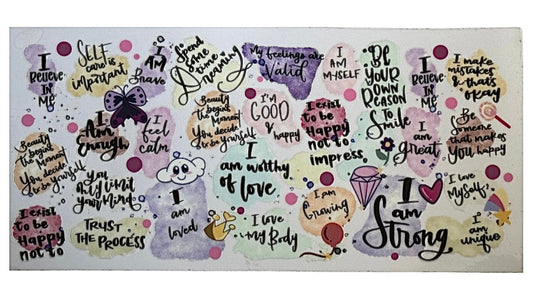 I
BELIEVE
IN
ME
SELF
care is
important
I
AM
Brave
Spend
Some
time
Dreaming
My feelings are
Valid
I
AM
MYSELF
BE
YOUR
OWN
REASON
TO
Smile
I
BELIEVE
IN
ME
I make
mistakes &
that's
okay
Beauty
begins
the Moment
You decide
to be yourself
I
Am
Enough
I
feel
calm
Beauty
begins
the Moment
You decide
to be yourself
I'm
GOOD
&
happy
I exist
to be
Happy
not to
impress
I
am
great
Be
Someone
that makes
YOU happy
I
am worthy
of love
You
Only limit
your Mind
I
am
loved
I
am
Growing
I
am
Strong
I love
Myself
I exist
to be
Happy
not to
TRUST
THE PROCESS
I love
My Body
I
am
unique